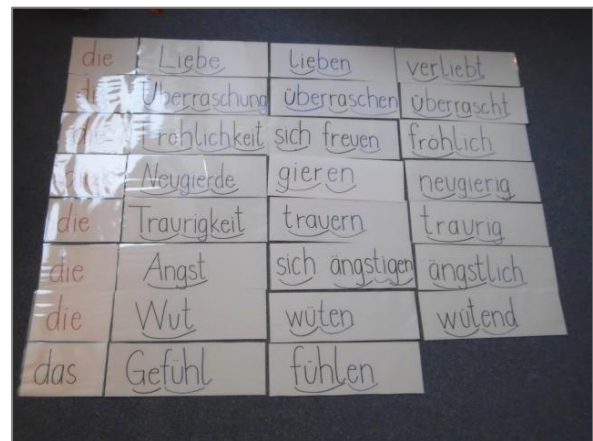 die Liebe lieben verliebt
die Überraschung überraschen überrascht
die Fröhlichkeit sich freuen fröhlich
die Neugierde gieren neugierig
die Traurigkeit trauern traurig
die Angst sich ängstigen ängstlich
die Wut wüten wütend
das Gefühl fühlen